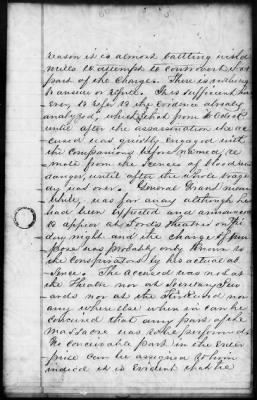 reason it is almost battling wind
mills to attempt to controvert that
part of the Charges. There is nothing
to answer or refute. It is sufficient how
ever, to refer to the evidence already
analyzed, which that from 10 o'clock
until after the assassination the ac
cused was quietly engaged with
the companions before named, re
mote from the scenes of blood and
danger, until after the whole trage
dy was over. General Grant mean
while, was far away although he
had been expected and announced
to appear at Fords theatre on Fri
day night and the change of pur
pose was probably only known to
the conspirators by his actual ab
sence. The accused was not at
the Theatre nor at Secretary Sew
ards nor at the Kirkwood nor
any where else when it can be
conceived that any part of the
massacre was to be performed.
No conceivable part in the enter
prise can be assigned to him
indeed it is evident that he